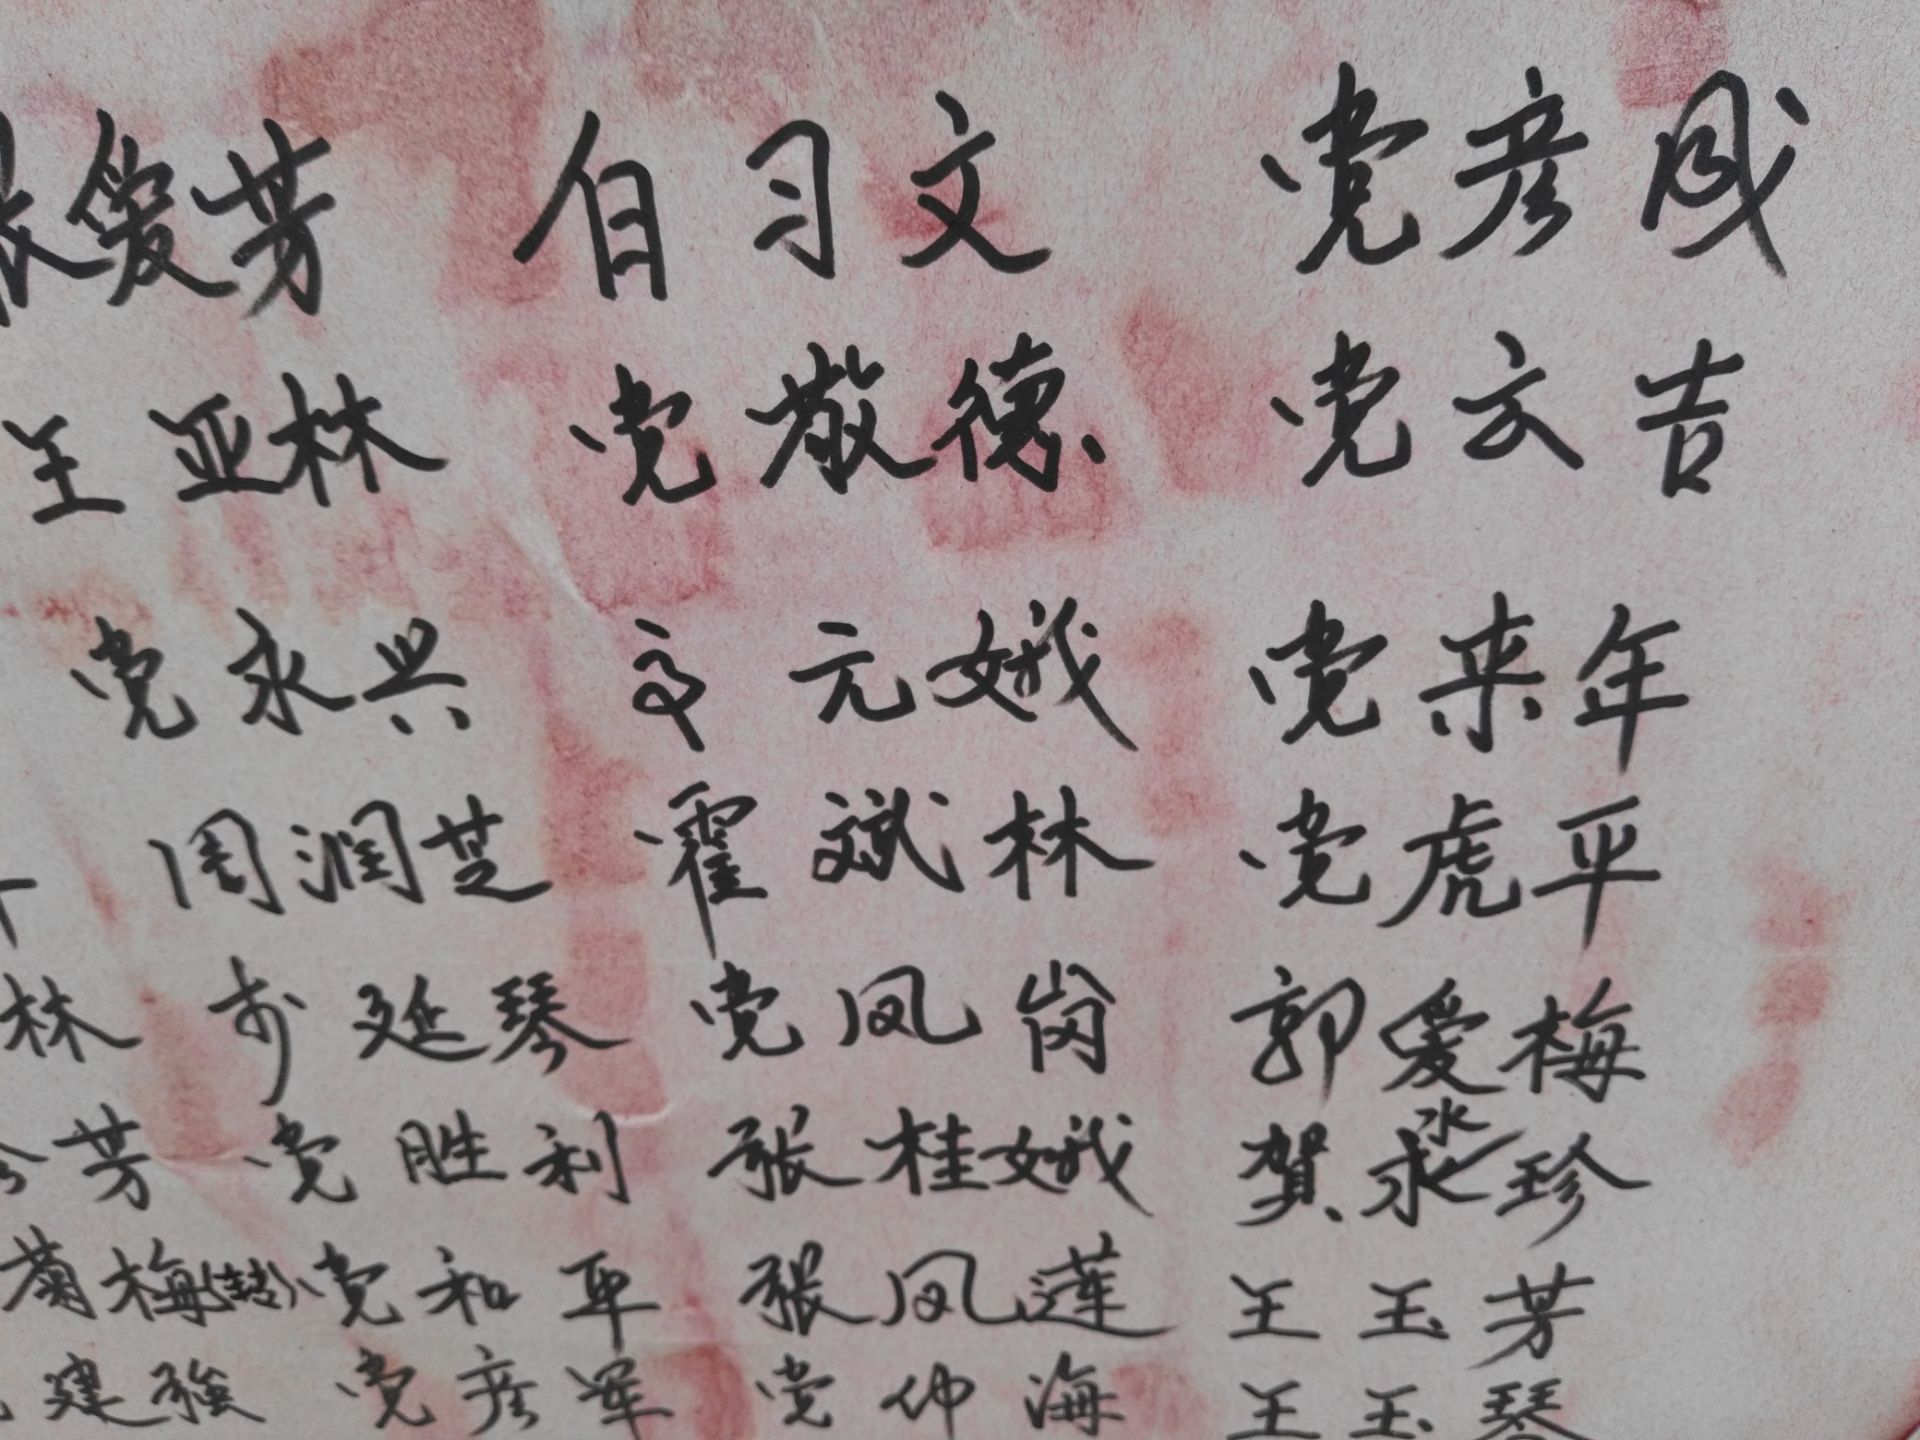 张爱芳 白习文 党彦成
王亚林 党敬德 党文吉
党永兴 元娥 党来年
周润芝 霍斌林 党虎平
林 延琴 党凤岗 郭爱梅
芳 党胜利 张桂娥 贺永淼珍
菊梅 党和平 张凤莲 王玉芳
建强 党彦军 党仲海 王玉琴